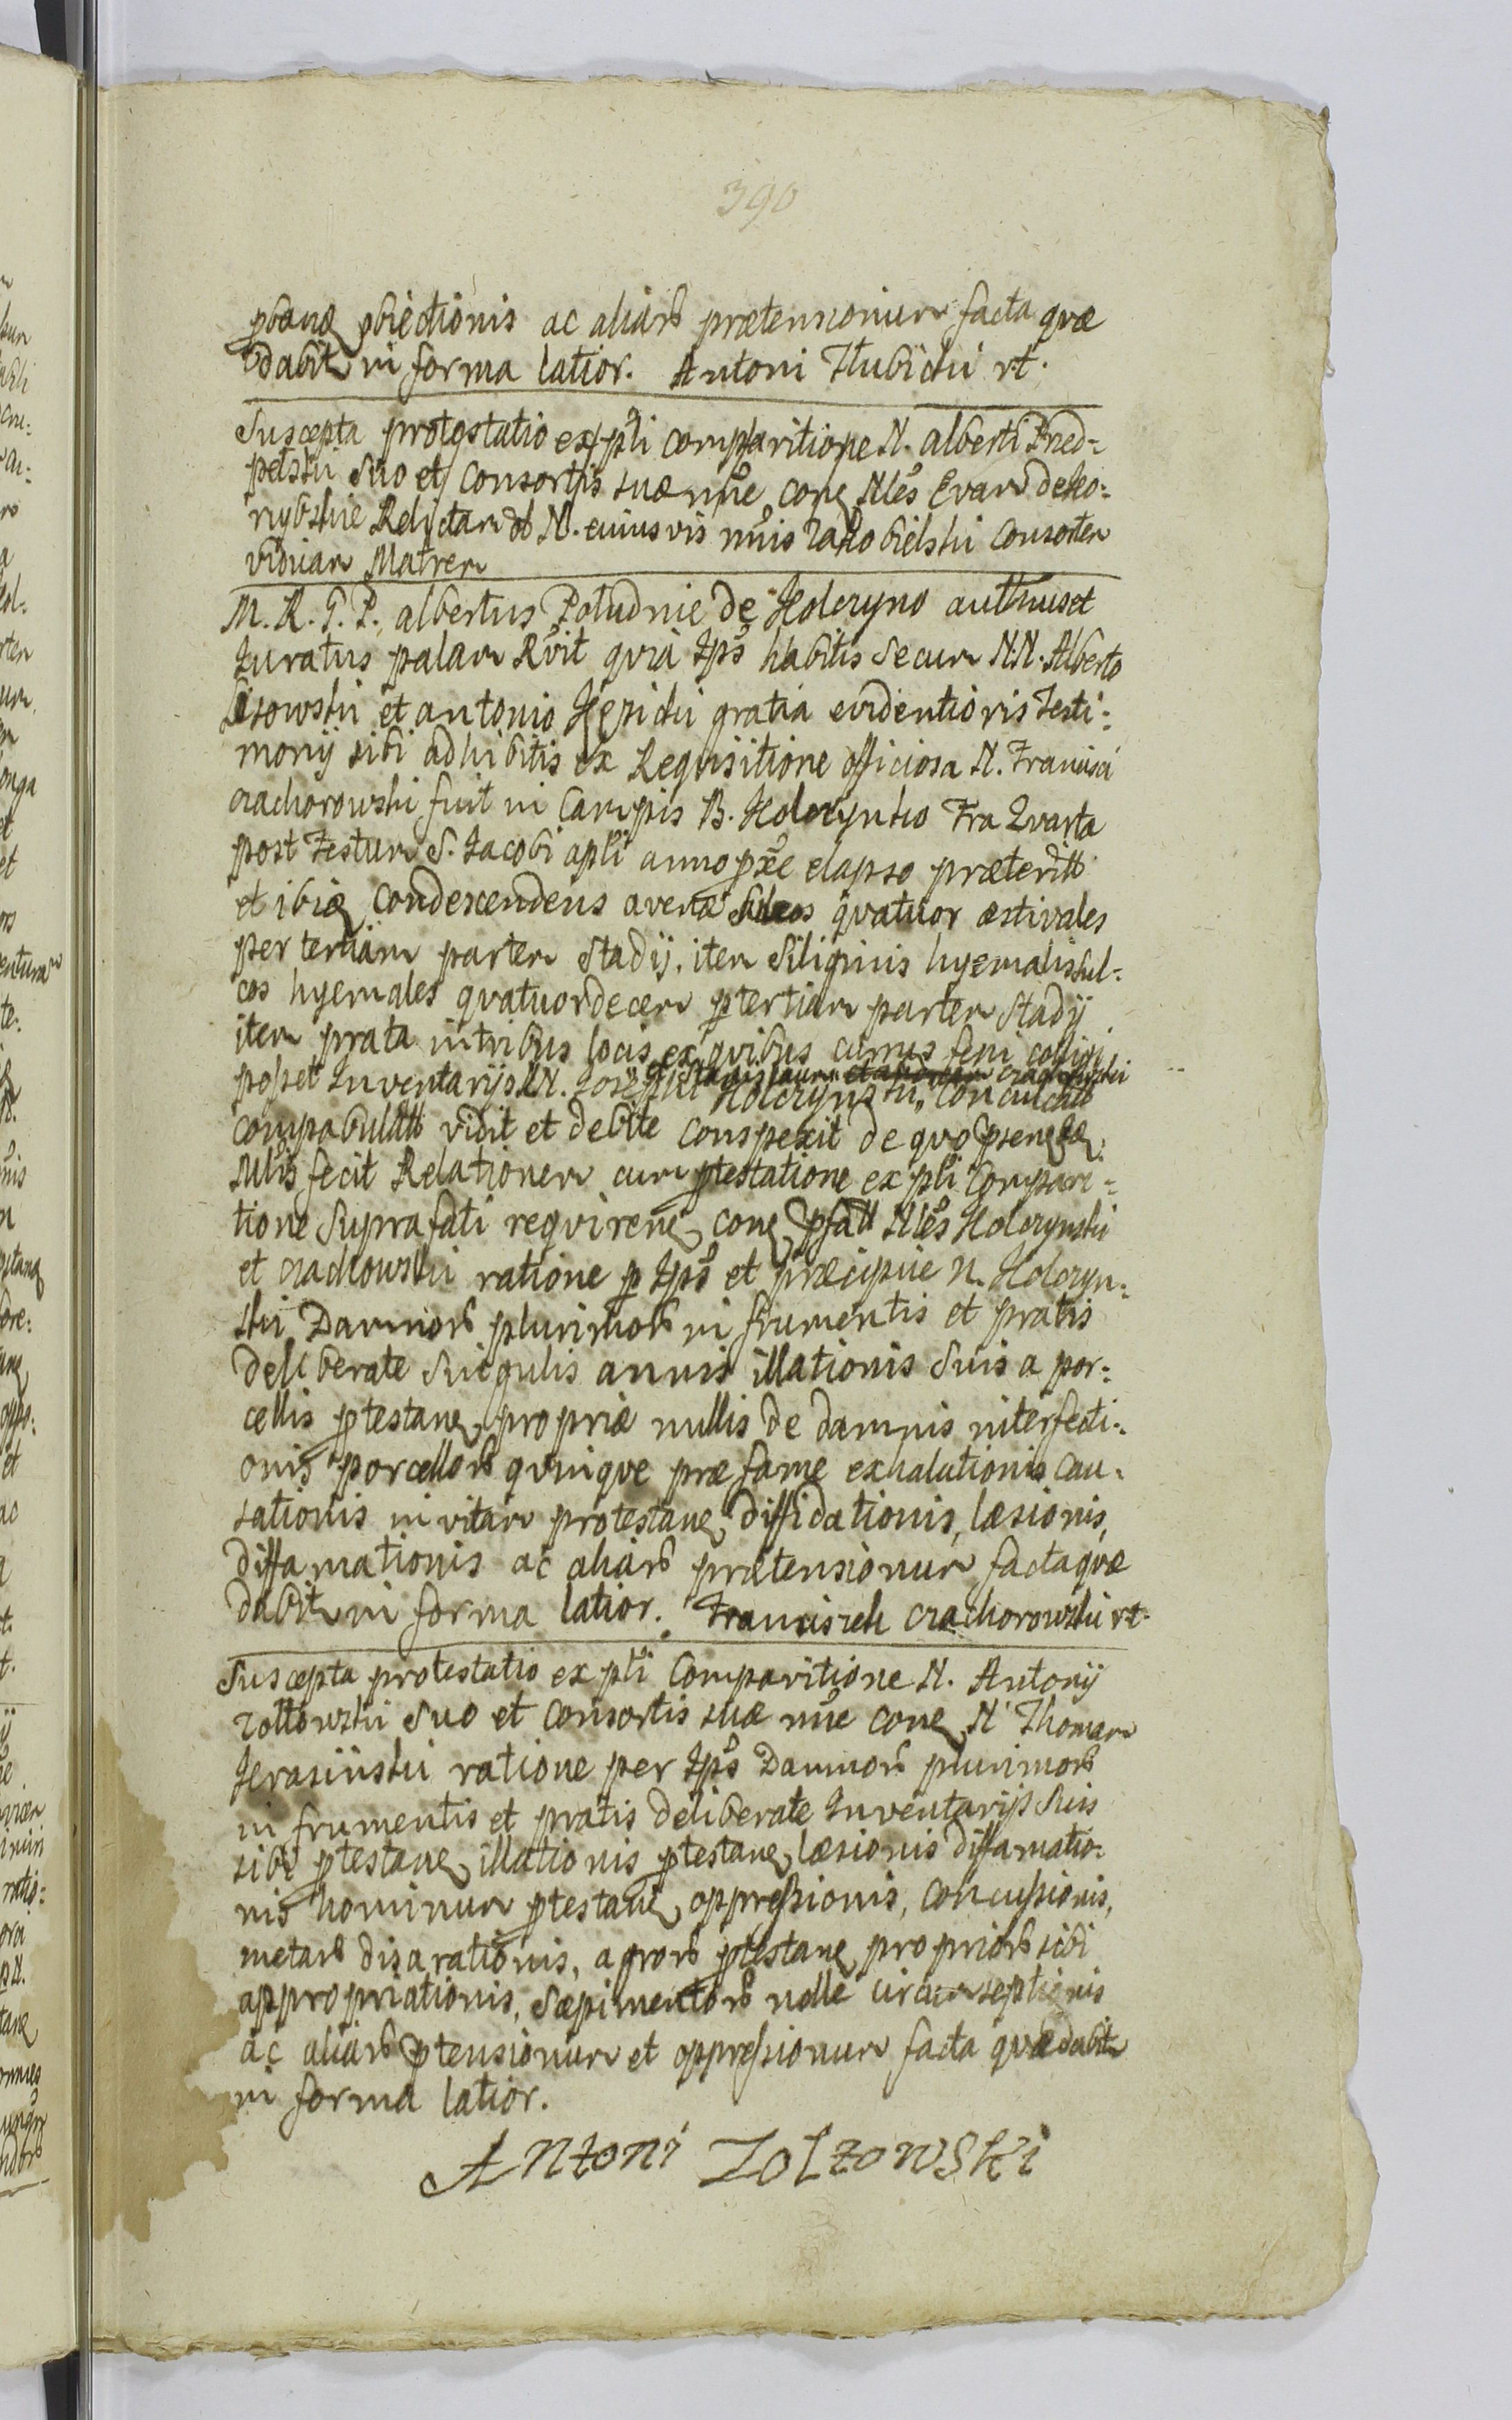 390
obiectionis ac aliarū prætensionum facta quæ
dabitr in forma latior. Antoni Hubicki rt.
Suscepta protestatio ex psti comparitione N. alberti Przed=
pełski suo et Consortis suæ nne, conq Nles Evam de Ko=
rybskie Relictam N. cuiusvis nnis Zakobielski Consortem
viduam Matrem
M. R. T. P. albertus Południe de Holczyno autthus et
Juratus palam Rvit quia Ips habitis Secum N.N. Alberto
Lisowski et antonio gratia evidentioris Testi=
monij sibi adhibitis ex Requisitione officiosa N. Francisci
czachorowski fuit in Campis B. Holczynko Fra Quarta
post Festum S. Jacobi apli anno pxe elapso præterito
et ibiq Condescendens avenæ Sulcos quatuor æstivales
per tertiam partem Stadij, item Siliginis hyemalis Sul=
cos hyemales quatuordecem p tertiam partem Stadij
item prata in tribus locis ex quibus currus feni colligi
posset Inventarijs NN. Josephi Holczynski, Conculcata
compabulata vidit et debite conspexit de quo
fecit Relationem cum ptestatione ex psti Compari=
tione Suprafati requirenẽ conq Nles Holczynski
et czachowski ratione p Ips et præcipue N. Holczyn=
ski Damnorū plurimorū in frumentis et pratis
deliberate Singulis annis illationis Suis a por=
cellis ptestanẽ, propriæ nullis de damnis interfecti=
onis porcellorū quinque præ fame exhalationis Cau=
sationis in vitam protestanẽ, diffidationis, læsionis,
diffamationis ac aliarū prætensionum facta quæ
dabitr in forma latior. Franciszek czachorowski rt.
Suscepta protestatio ex psti Comparitione N. Antonij
Zołtowski Suo et Consortis suæ nne conq N Thomam
Jerasinski ratione per Ips Damnorū plurimorū
in frumentis et pratis deliberate Inventarijs Suis
sibi ptestanẽ, illationis ptestanẽ, læsionis diffamatio=
nis hominum ptestanẽ, oppressionis, concussionis,
metarū disarationis, agrorū ptestanẽ propriorū sibi
appropriationis, Sæpimentorū nolle circumseptionis
ac aliarū ptensionum et oppressionum facta quæ dabitr
in forma latior.
Antoni Zołtowski